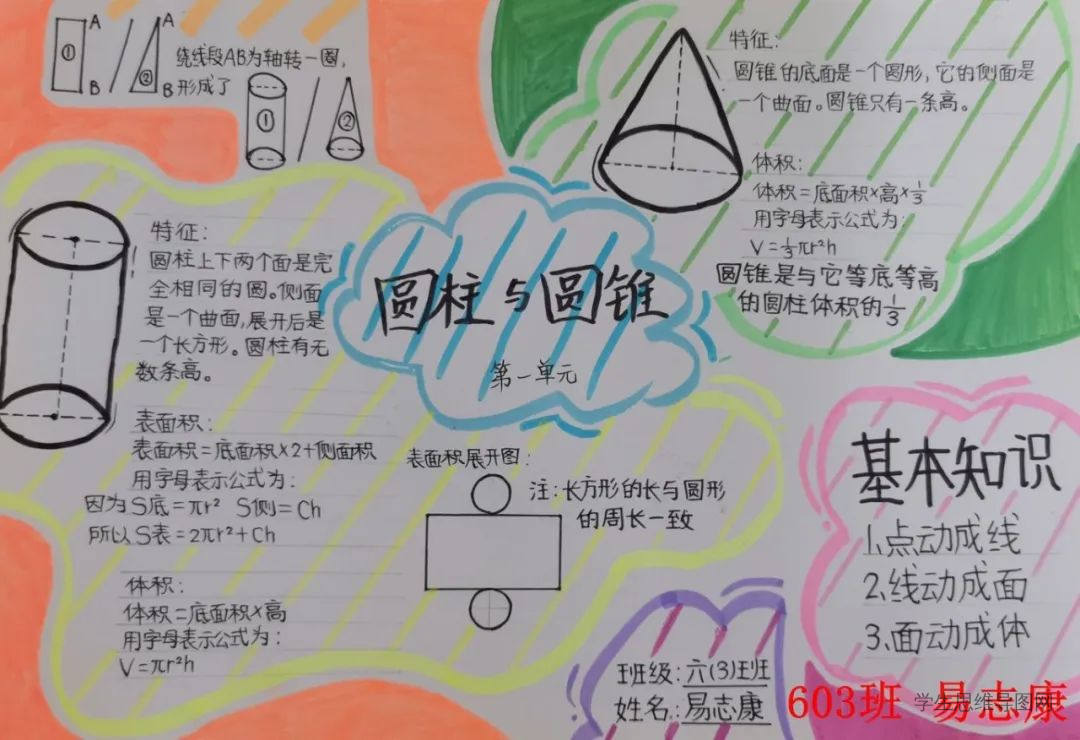 ① A
B
② A
B
绕线段AB为轴转一圈，
形成了
①
②
特征：
圆锥的底面是一个圆形，它的侧面是
一个曲面。圆锥只有一条高。
体积：
体积=底面积×高×1/3
用字母表示公式为：
V=1/3πr²h
圆锥是与它等底等高
的圆柱体积的1/3
圆柱与圆锥
第一单元
特征：
圆柱上下两个面是完
全相同的圆。侧面
是一个曲面，展开后是
一个长方形。圆柱有无
数条高。
表面积：
表面积=底面积×2+侧面积
用字母表示公式为：
因为S底=πr² S侧=Ch
所以S表=2πr²+Ch
体积：
体积=底面积×高
用字母表示公式为：
V=πr²h
表面积展开图：
注：长方形的长与圆形
的周长一致
基本知识
1.点动成线
2.线动成面
3.面动成体
班级：六(3)班班
姓名：易志康
603班 易志康
学生思维导图网